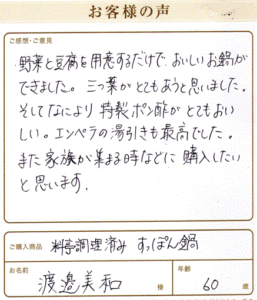 お客様の声
ご感想・ご意見
野菜と豆腐を用意するだけで、おいしいお鍋が
できました。三つ葉がとてもあうと思いました。
そしてなにより特製ポン酢がとてもおい
しい。エンペラの湯引きも最高でした。
また家族が集まる時などに購入したい
と思います。
ご購入商品 料亭調理済み すっぽん鍋
お名前 渡邉美和 様 年齢 60 歳